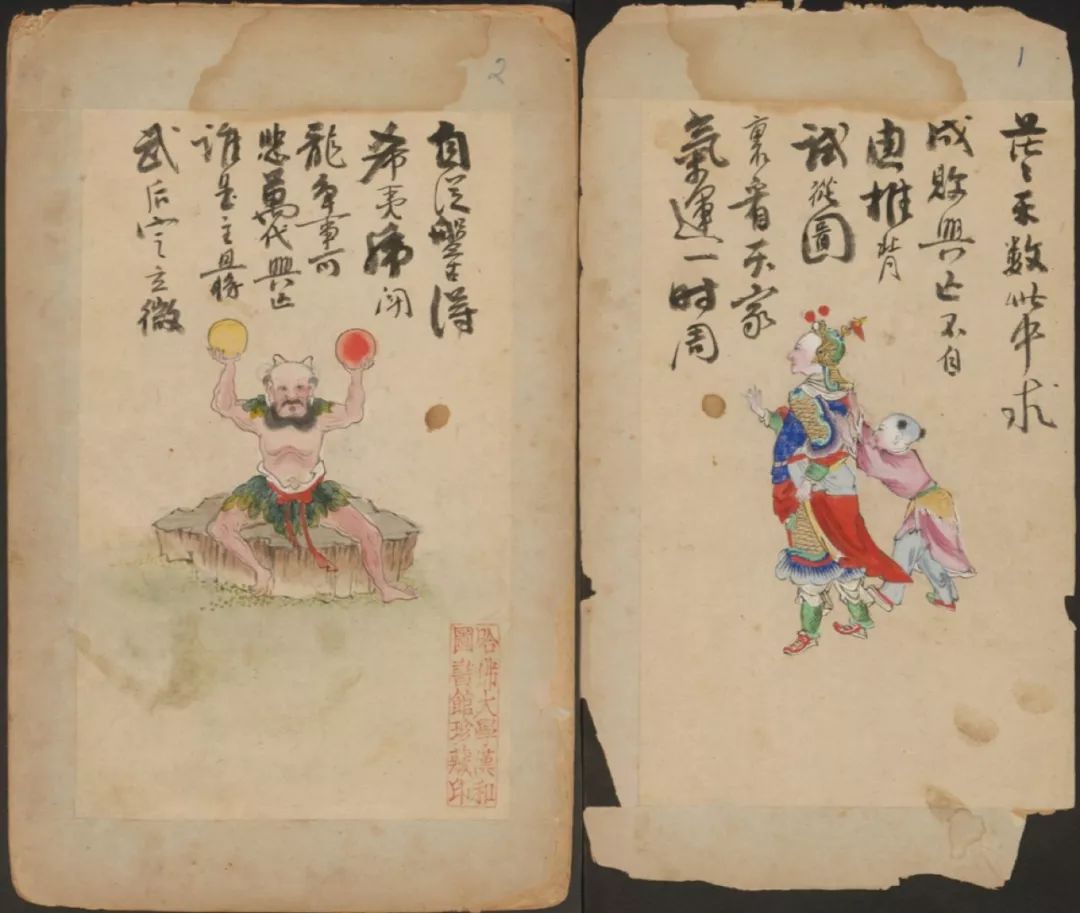 1
茫〻天数此中求
成敗興亡不自
由推背
試從圖
裏看天家
氣運一时周
2
自從盤古得
希夷虎鬪
龍争事可
悲萬代興亡
誰是主且將
武后定立微
哈佛大學漢和
圖書館珍藏印